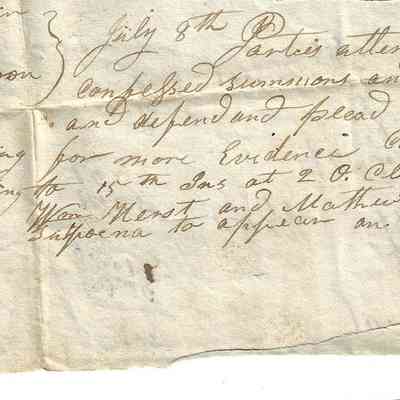 in July 8th Parties atten
on confessed summons an
and defend and plead
ng for more Evidence
ng to 15th Ins at 2 O. Cl
Wm Herst and Mathew
Suppoena to appear on